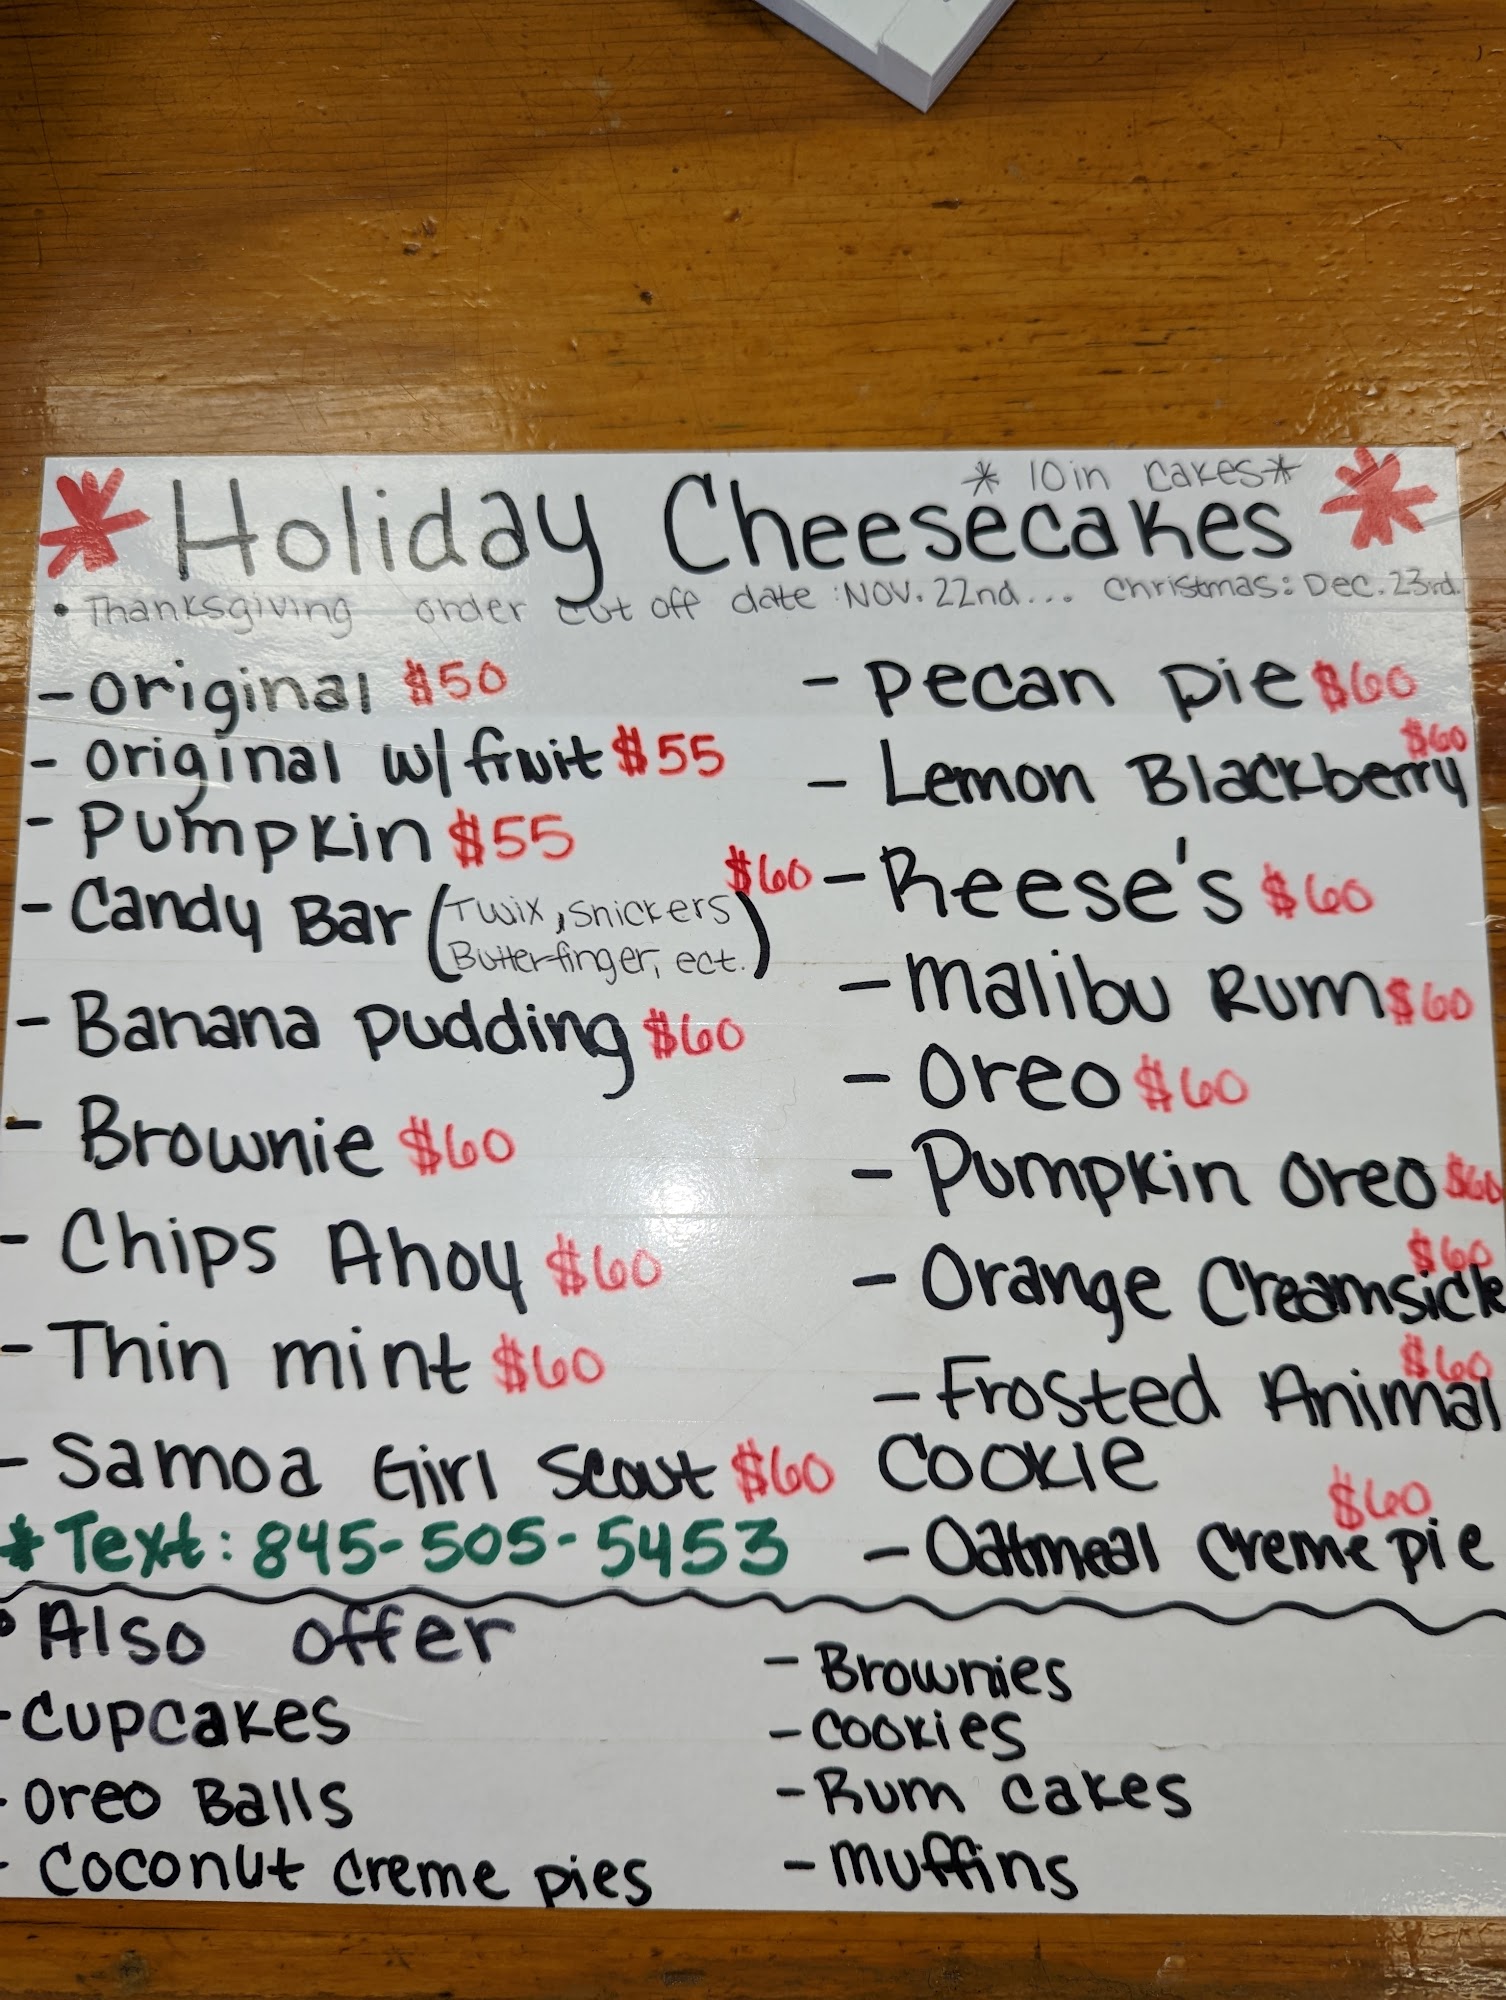 * 10in cakes*
Holiday Cheesecakes
• Thanksgiving order cut off date : Nov. 22nd... Christmas: Dec. 23rd.
- Original $50
- Original w/ fruit $55
- Pumpkin $55
- Candy Bar (Twix, Snickers $60
Butterfinger, ect.)
- Banana Pudding $60
- Brownie $60
- Chips Ahoy $60
- Thin mint $60
- Samoa Girl Scout $60
* Text: 845-505-5453
- Pecan Pie $60
- Lemon Blackberry $60
- Reese's $60
- Malibu Rum $60
- Oreo $60
- Pumpkin Oreo $60
- Orange Creamsicle $60
- Frosted Animal $60
Cookie
- Oatmeal Creme pie $60
• Also offer
- Cupcakes
- Oreo Balls
- Coconut Creme pies
- Brownies
- Cookies
- Rum Cakes
- Muffins